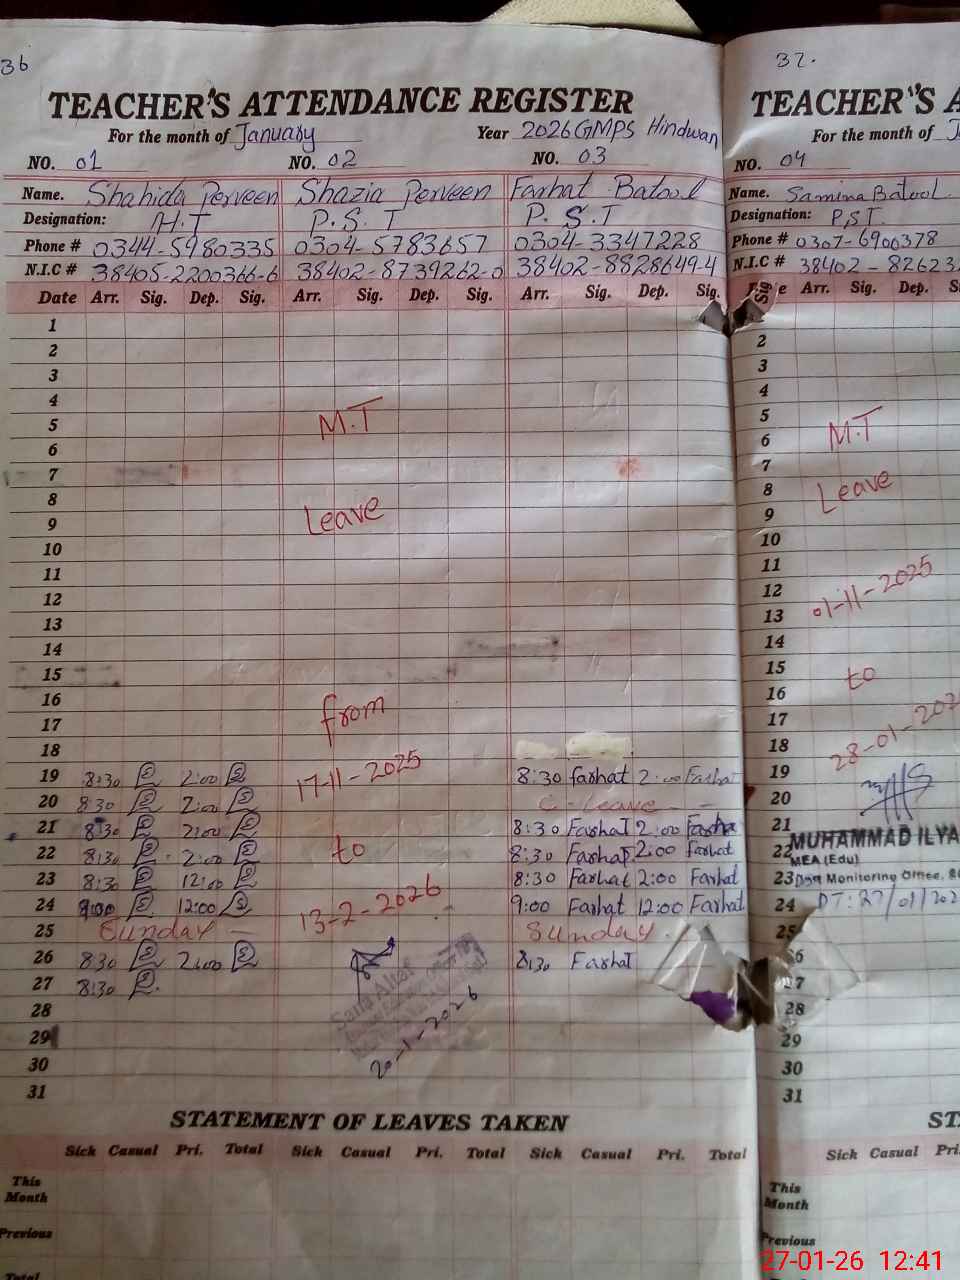 36
TEACHER'S ATTENDANCE REGISTER
For the month of January Year 2026 GMPS Hindwan
NO. 01 NO. 02 NO. 03
Name. Shahida Perveen Shazia Perveen Farhat Batool
Designation: H.T P.S.T P.S.T
Phone # 0344-5980335 0304-5783657 0304-3347228
N.I.C # 38405-2200366-6 38402-8739262-0 38402-8828649-4
Date Arr. Sig. Dep. Sig. Arr. Sig. Dep. Sig. Arr. Sig. Dep. Sig.
1
2
3
4
5 M.T
6
7
8
9 Leave
10
11
12
13
14
15
16
17 from
18
19 8:30 2:00 17-11-2025 8:30 farhat 2:00 Farhat
20 8:30 2:00 C-Leave
21 8:30 2:00 8:30 Farhat 2:00 Farhat
22 8:30 2:00 to 8:30 Farhat 2:00 Farhat
23 8:30 12:00 8:30 Farhat 2:00 Farhat
24 9:00 12:00 13-2-2026 9:00 Farhat 12:00 Farhat
25 Sunday Sunday
26 8:30 2:00 8:30 Farhat
27 8:30
28 Sana Altaf
29 20-1-2026
30
31
STATEMENT OF LEAVES TAKEN
Sick Casual Pri. Total Sick Casual Pri. Total Sick Casual Pri. Total
This Month
Previous
Total
32.
TEACHER'S A
For the month of J
NO. 04
Name. Samina Batool
Designation: P.S.T
Phone # 0307-6900378
N.I.C # 38402-82623
Arr. Sig. Dep. S
2
3
4
5
6 M.T
7
8 Leave
9
10
11
12 01-11-2025
13
14
15 to
16
17
18 28-01-202
19
20
21 MUHAMMAD ILYA
22 MEA (Edu)
23 Monitoring Office,
24 DT: 27/01/202
25
28
29
30
31
ST
Sick Casual Pri.
This Month
Previous
27-01-26 12:41